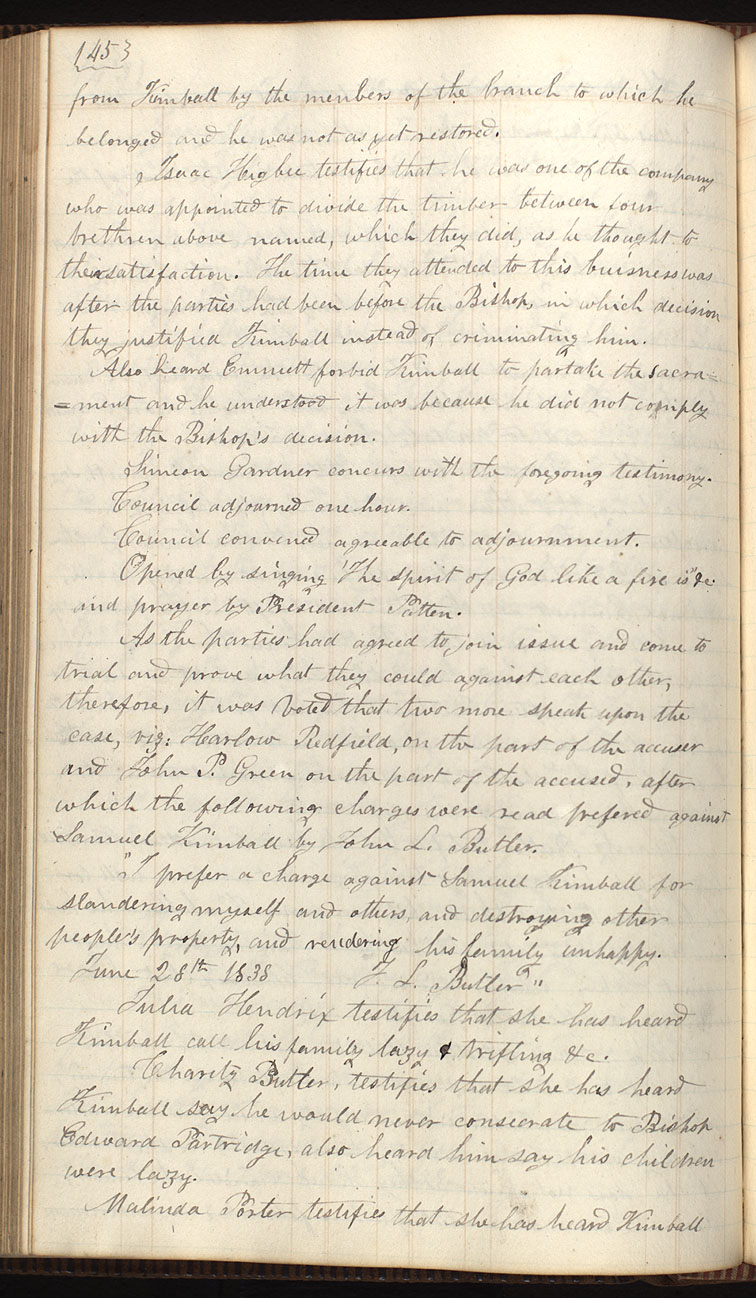 145}
from Kimball by the members of the branch to which he
belonged and he was not as yet restored.
Isaac Higbee testifies that he was one of the company
who was appointed to divide the timber between four
brethren above named, which they did, as he thought to
their satisfaction. The time they attended to this buisness was
after the parties had been before the Bishop, in which decision
they justified Kimball instead of criminating him.
Also heard Emmett forbid Kimball to partake the sacra=
=ment and he understood it was because he did not comply
with the Bishop's decision.
Simeon Gardner concurs with the foregoing testimony.
Council adjourned one hour.
Council convened agreeable to adjournment.
Opened by singing 'The spirit of God like a fire is" &c.
and prayer by President Patten.
As the parties had agreed to join issue and come to
trial and prove what they could against each other,
therefore, it was voted that two more speak upon the
case, viz: Harlow Redfield, on the part of the accuser
and John P. Green on the part of the accused, after
which the following charges were read prefered against
Samuel Kimball by John L. Butler.
"I prefer a charge against Samuel Kimball for
slandering myself and others, and destroying other
people's property, and rendering his family unhappy.
June 28th 1838 J. L. Butler"
Julia Hendrix testifies that she has heard
Kimball call his family lazy & trifling &c.
Charity Butler, testifies that she has heard
Kimball say he would never consecrate to Bishop
Edward Partridge, also heard him say his children
were lazy.
Malinda Porter testifies that she has heard Kimball